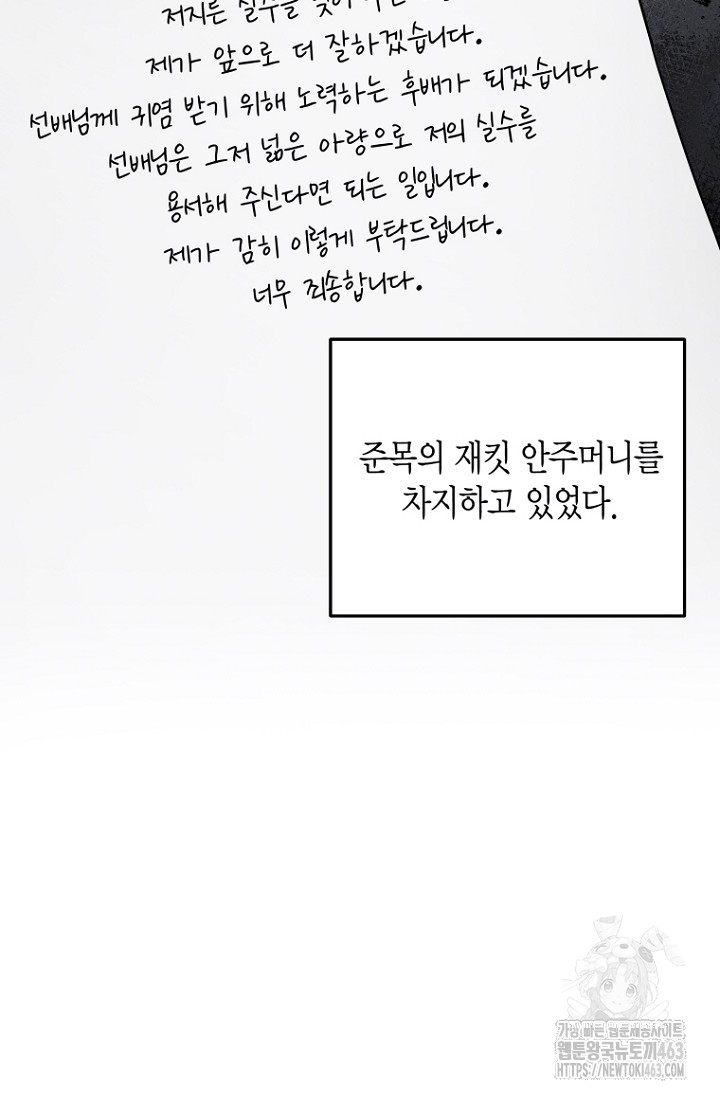 저지른 실수를
제가 앞으로 더 잘하겠습니다.
선배님께 귀염 받기 위해 노력하는 후배가 되겠습니다.
선배님은 그저 넓은 아량으로 저의 실수를
용서해 주신다면 되는 일입니다.
제가 감히 이렇게 부탁드립니다.
너무 죄송합니다.
준목의 재킷 안주머니를
차지하고 있었다.
가장 빠른 웹툰제공사이트
웹툰왕국뉴토끼463
HTTPS://NEWTOKI463.COM